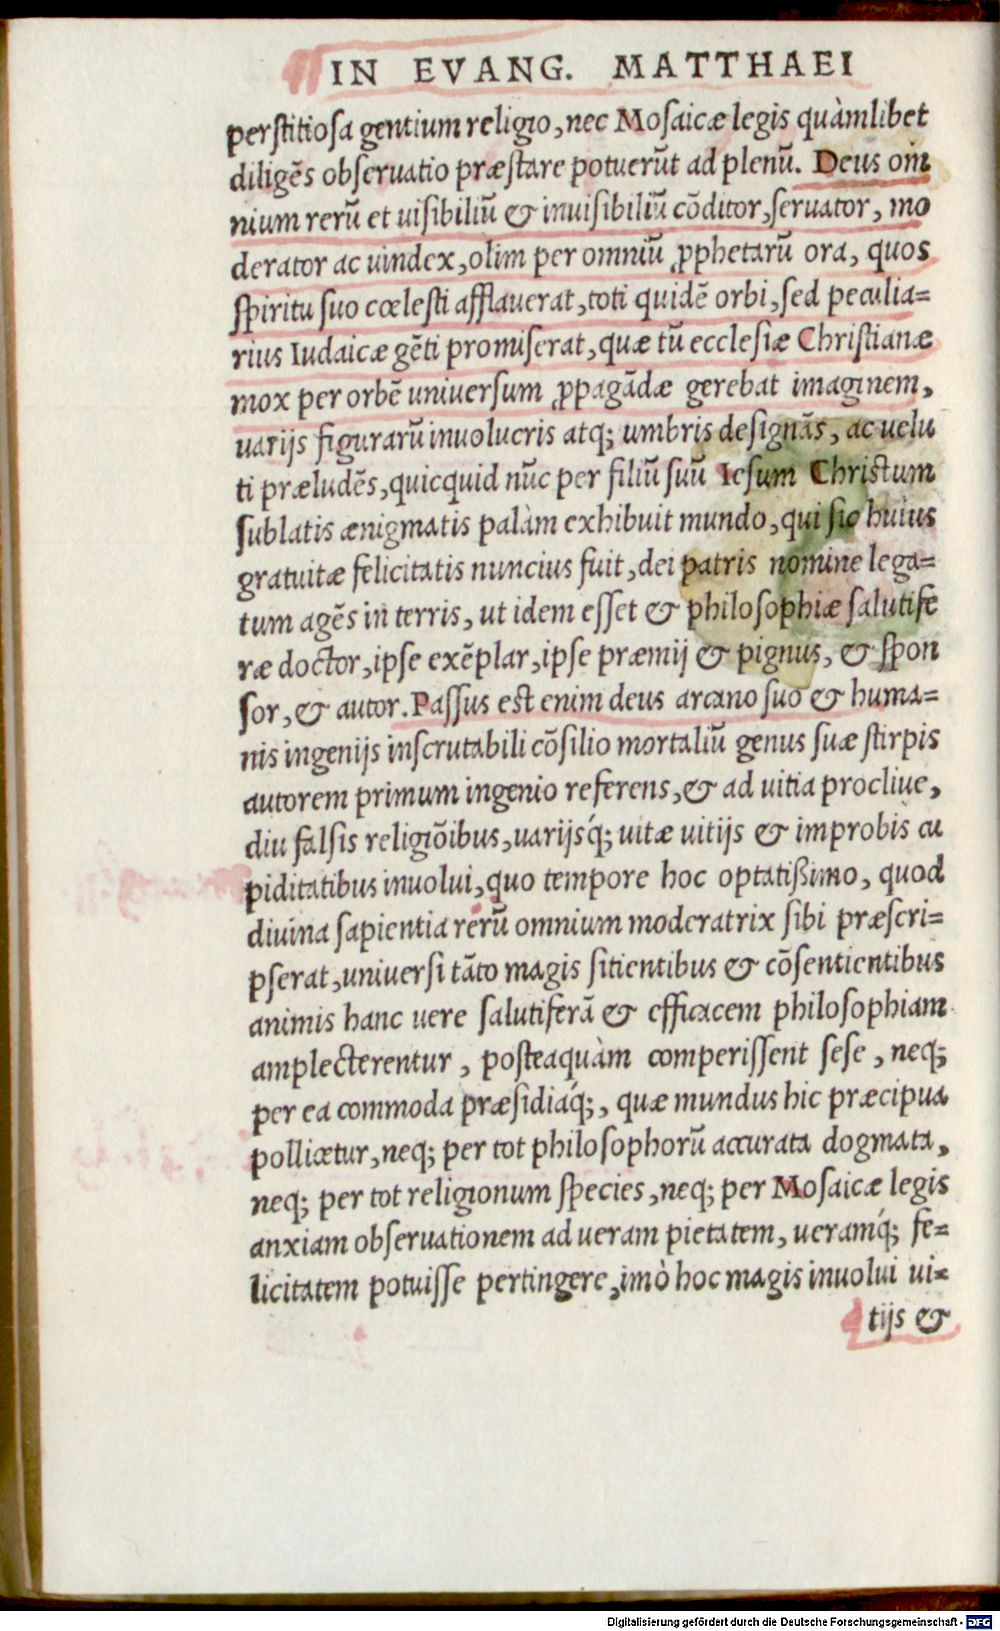 IN EVANG. MATTHAEI
perſtitioſa gentium religio, nec Moſaicæ legis quàmlibet
diligẽs obſeruatio præſtare potuerũt ad plenũ. Deus om
nium rerũ et uiſibiliũ & inuiſibiliũ cõditor, ſeruator, mo
derator ac uindex, olim per omniũ ꝓphetarũ ora, quos
ſpiritu ſuo cœleſti afflauerat, toti quidẽ orbi, ſed peculia=
rius Iudaicæ gẽti promiſerat, quæ tũ eccleſiæ Chriſtianæ
mox per orbẽ uniuerſum ꝓpagãdæ gerebat imaginem,
uarijs figurarũ inuolucris atq; umbris deſignãs, ac uelu
ti præludẽs, quicquid nũc per filiũ ſuũ Ieſum Chriſtum
ſublatis ænigmatis palàm exhibuit mundo, qui ſic huius
gratuitæ felicitatis nuncius fuit, dei patris nomine lega=
tum agẽs in terris, ut idem eſſet & philoſophiæ ſalutife
ræ doctor, ipſe exẽplar, ipſe præmij & pignus, & ſpon
ſor, & autor. Paſſus eſt enim deus arcano ſuo & huma=
nis ingenijs inſcrutabili cõſilio mortaliũ genus ſuæ ſtirpis
autorem primum ingenio referens, & ad uitia procliue,
diu falſis religiõibus, uarijsq́; uitæ uitijs & improbis cu
piditatibus inuolui, quo tempore hoc optatiſsimo, quod
diuina ſapientia rerũ omnium moderatrix ſibi præſcri=
pſerat, uniuerſi tãto magis ſitientibus & cõſentientibus
animis hanc uere ſalutiferã & efficacem philoſophiam
amplecterentur, poſteaquàm comperiſſent ſeſe, neq;
per ea commoda præſidiaq́;, quæ mundus hic præcipua
pollicetur, neq; per tot philoſophorũ accurata dogmata,
neq; per tot religionum ſpecies, neq; per Moſaicæ legis
anxiam obſeruationem ad ueram pietatem, ueramq́; fe=
licitatem potuiſſe pertingere, imò hoc magis inuolui ui=
tijs &
Digitalisierung gefördert durch die Deutsche Forschungsgemeinschaft - DFG